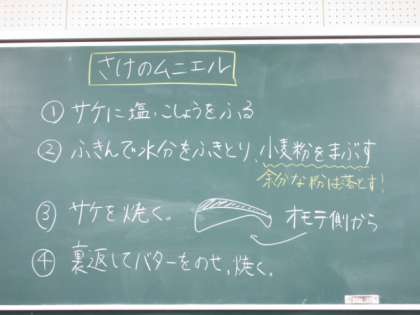 さけのムニエル
① サケに塩、こしょうをふる
② ふきんで水分をふきとり、小麦粉をまぶす
余分な粉は落とす!
③ サケを焼く。 オモテ側から
④ 裏返してバターをのせ、焼く。